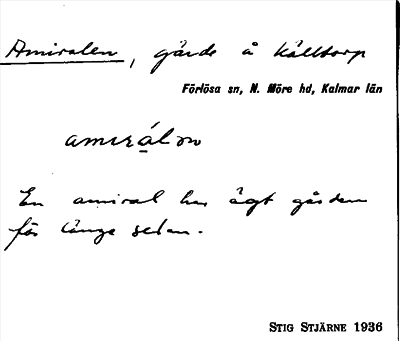 Amiralen, gärde å Källtorp
Förlösa sn, N. Möre hd, Kalmar län
amırá̱lən
En amiral har ägt gården
för länge sedan.
STIG STJÄRNE 1936